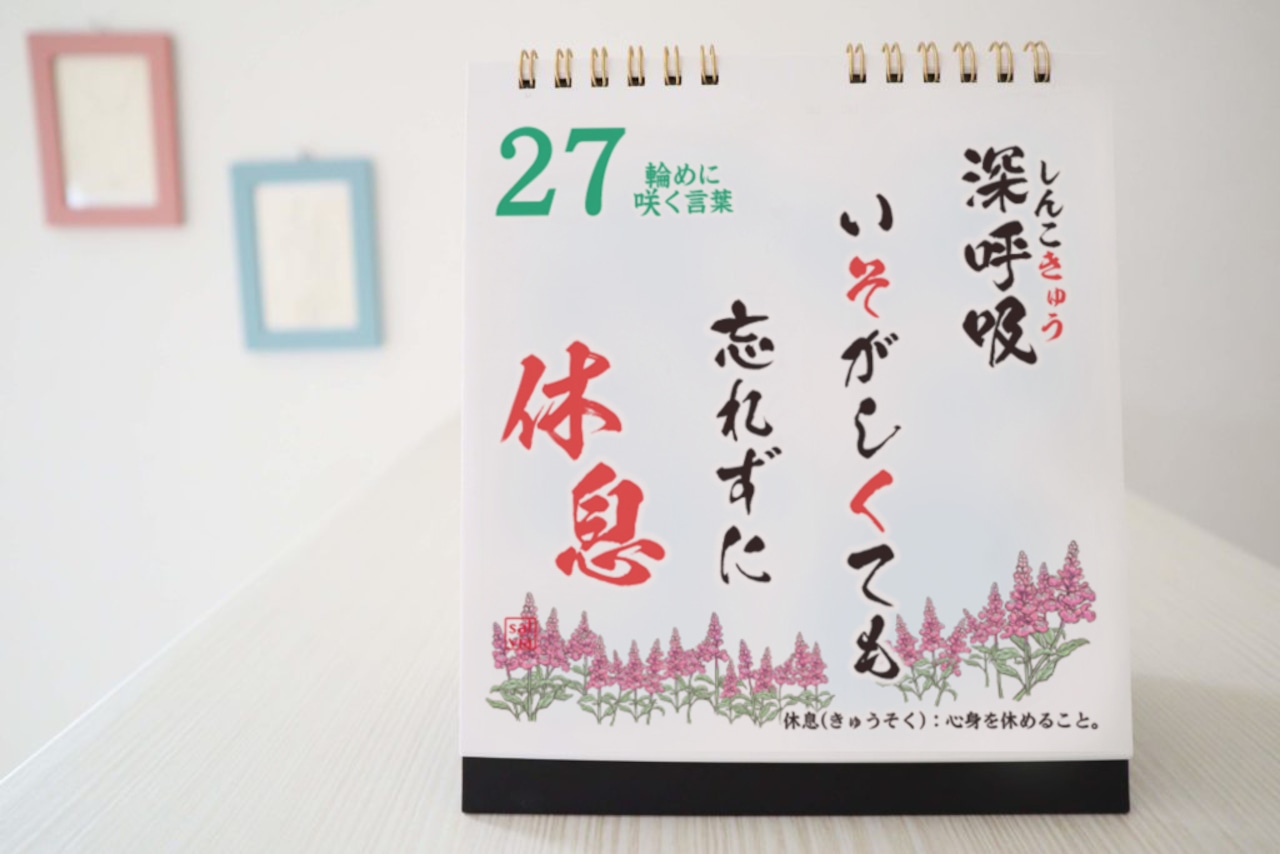 27
輪めに
咲く言葉
深呼吸
しんこきゅう
いそがしくても
忘れずに
休息
sal
via
休息(きゅうそく):心身を休めること。